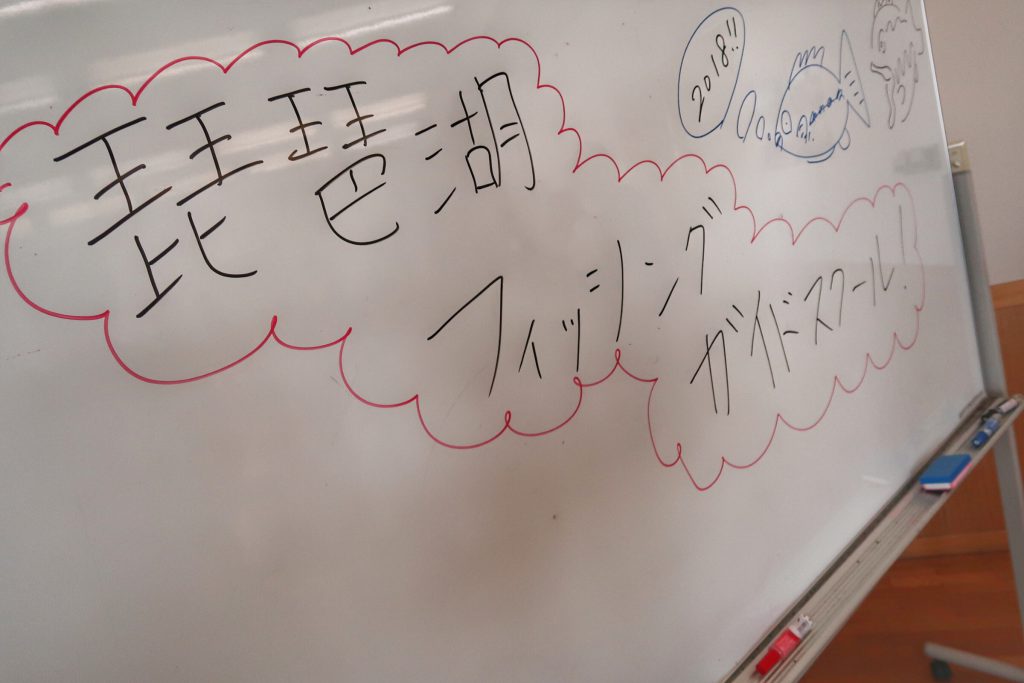 琵琶湖
フィッシング
ガイドスクール!
2018!!